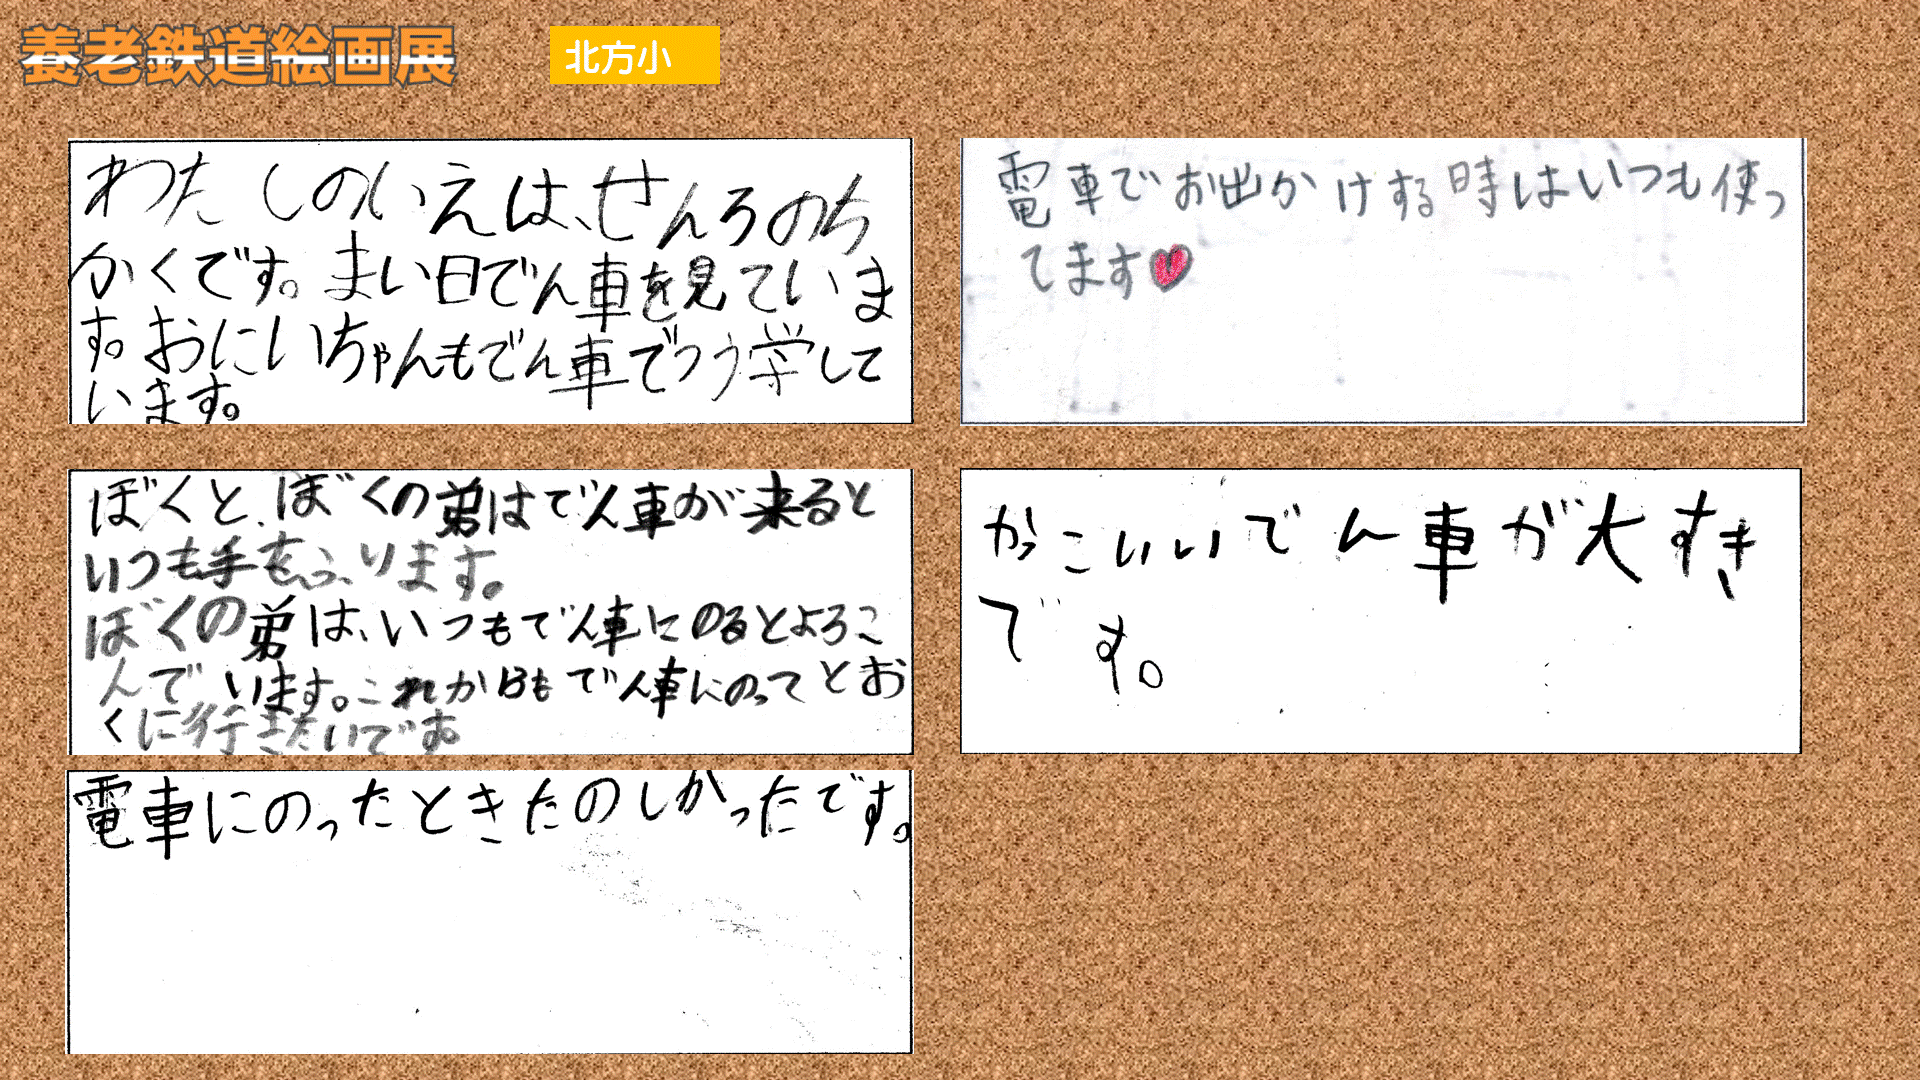 養老鉄道絵画展
北方小
わたしのいえは、せんろのち
かくです。まい日でん車を見ていま
す。おにいちゃんもでん車でつう学して
います。
電車でお出かけする時はいつも使っ
てます
ぼくと、ぼくの弟はでん車が来ると
いつも手をふります。
ぼくの弟は、いつもでん車にのるとよろこ
んでいます。これからもでん車にのってとお
くに行きたいです
かっこいいでん車が大すき
です。
電車にのったときたのしかったです。